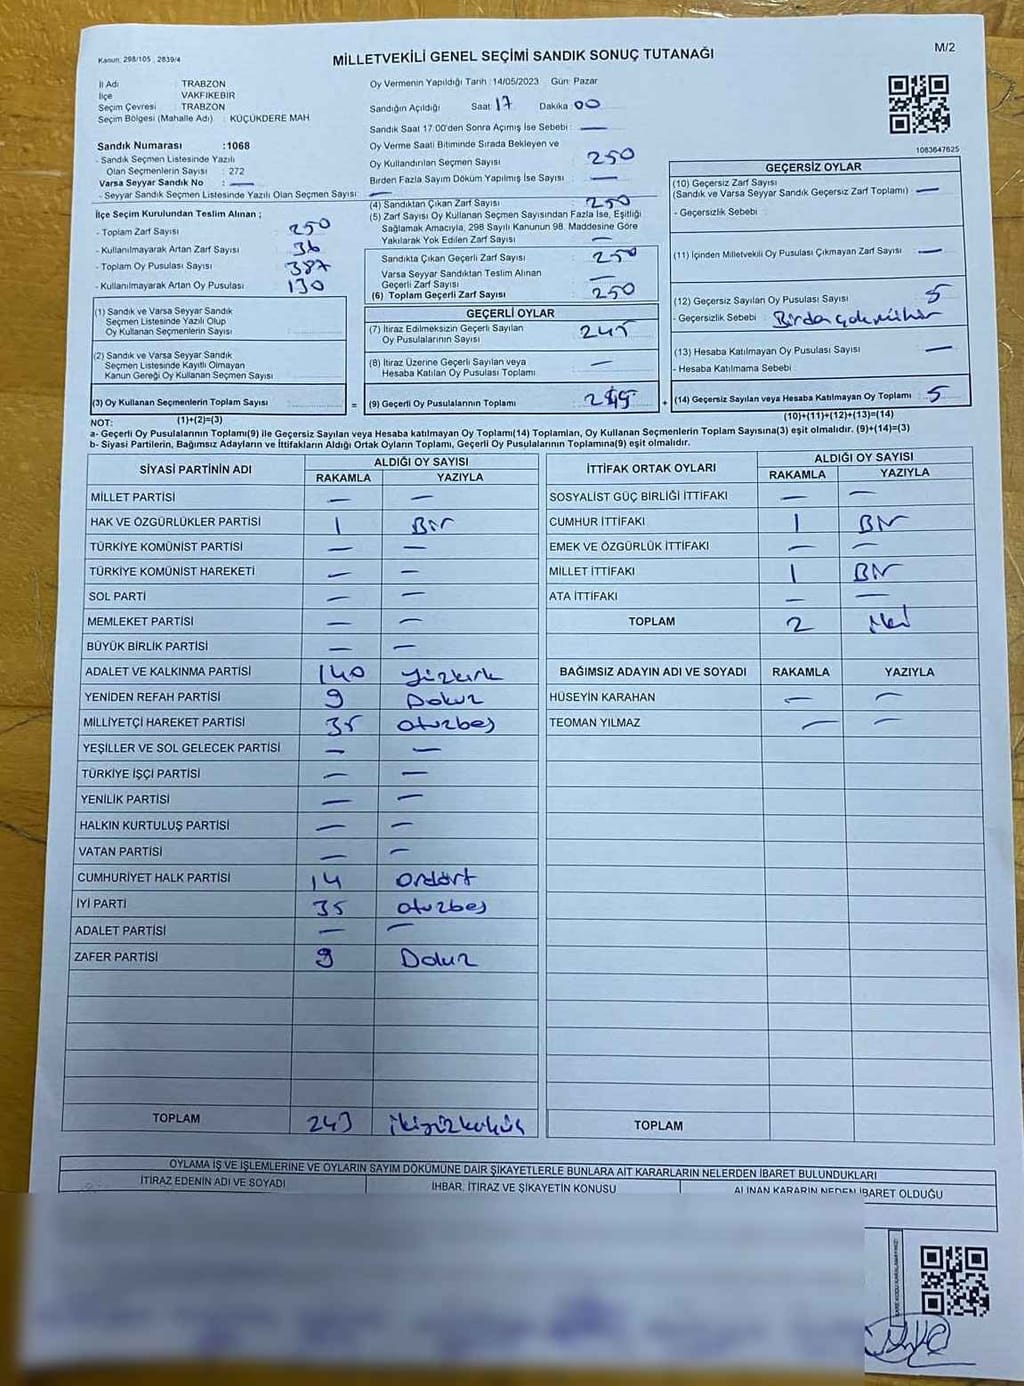 M/2
Kanun: 298/105 , 2839/4
MİLLETVEKİLİ GENEL SEÇİMİ SANDIK SONUÇ TUTANAĞI
İl Adı : TRABZON
İlçe : VAKFIKEBİR
Seçim Çevresi : TRABZON
Seçim Bölgesi (Mahalle Adı) : KÜÇÜKDERE MAH
Sandık Numarası :1068
- Sandık Seçmen Listesinde Yazılı
Olan Seçmenlerin Sayısı : 272
Varsa Seyyar Sandık No : —
- Seyyar Sandık Seçmen Listesinde Yazılı Olan Seçmen Sayısı : —
İlçe Seçim Kurulundan Teslim Alınan ;
- Toplam Zarf Sayısı : 250
- Kullanılmayarak Artan Zarf Sayısı : 36
- Toplam Oy Pusulası Sayısı : 387
- Kullanılmayarak Artan Oy Pusulası : 130
(1) Sandık ve Varsa Seyyar Sandık
Seçmen Listesinde Yazılı Olup
Oy Kullanan Seçmenlerin Sayısı :
(2) Sandık ve Varsa Seyyar Sandık
Seçmen Listesinde Kayıtlı Olmayan
Kanun Gereği Oy Kullanan Seçmen Sayısı :
(3) Oy Kullanan Seçmenlerin Toplam Sayısı :
(1)+(2)=(3)
Oy Vermenin Yapıldığı Tarih :14/05/2023 Gün: Pazar
Sandığın Açıldığı Saat 17 Dakika 00
Sandık Saat 17:00'den Sonra Açımış İse Sebebi : —
Oy Verme Saati Bitiminde Sırada Bekleyen ve
Oy Kullandırılan Seçmen Sayısı : 250
Birden Fazla Sayım Döküm Yapılmış İse Sayısı : —
(4) Sandıktan Çıkan Zarf Sayısı : 250
(5) Zarf Sayısı Oy Kullanan Seçmen Sayısından Fazla İse, Eşitliği
Sağlamak Amacıyla, 298 Sayılı Kanunun 98. Maddesine Göre
Yakılarak Yok Edilen Zarf Sayısı : —
Sandıkta Çıkan Geçerli Zarf Sayısı : 250
Varsa Seyyar Sandıktan Teslim Alınan
Geçerli Zarf Sayısı : —
(6) Toplam Geçerli Zarf Sayısı : 250
GEÇERLİ OYLAR
(7) İtiraz Edilmeksizin Geçerli Sayılan
Oy Pusulalarının Sayısı : 245
(8) İtiraz Üzerine Geçerli Sayılan veya
Hesaba Katılan Oy Pusulası Toplamı : —
= (9) Geçerli Oy Pusulalarının Toplamı : 245
1083647625
GEÇERSİZ OYLAR
(10) Geçersiz Zarf Sayısı
(Sandık ve Varsa Seyyar Sandık Geçersiz Zarf Toplamı) : —
- Geçersizlik Sebebi :
(11) İçinden Milletvekili Oy Pusulası Çıkmayan Zarf Sayısı : —
(12) Geçersiz Sayılan Oy Pusulası Sayısı : 5
- Geçersizlik Sebebi : Birden çok mühür
(13) Hesaba Katılmayan Oy Pusulası Sayısı : —
- Hesaba Katılmama Sebebi :
+ (14) Geçersiz Sayılan veya Hesaba Katılmayan Oy Toplamı : 5
(10)+(11)+(12)+(13)=(14)
NOT:
a- Geçerli Oy Pusulalarının Toplamı(9) ile Geçersiz Sayılan veya Hesaba katılmayan Oy Toplamı(14) Toplamları, Oy Kullanan Seçmenlerin Toplam Sayısına(3) eşit olmalıdır. (9)+(14)=(3)
b- Siyasi Partilerin, Bağımsız Adayların ve İttifakların Aldığı Ortak Oyların Toplamı, Geçerli Oy Pusulalarının Toplamına(9) eşit olmalıdır.
SİYASİ PARTİNİN ADI ALDIĞI OY SAYISI
RAKAMLA YAZIYLA
MİLLET PARTİSİ — —
HAK VE ÖZGÜRLÜKLER PARTİSİ 1 Bir
TÜRKİYE KOMÜNİST PARTİSİ — —
TÜRKİYE KOMÜNİST HAREKETİ — —
SOL PARTİ — —
MEMLEKET PARTİSİ — —
BÜYÜK BİRLİK PARTİSİ — —
ADALET VE KALKINMA PARTİSİ 140 Yüzkırk
YENİDEN REFAH PARTİSİ 9 Dokuz
MİLLİYETÇİ HAREKET PARTİSİ 35 otuzbeş
YEŞİLLER VE SOL GELECEK PARTİSİ — —
TÜRKİYE İŞÇİ PARTİSİ — —
YENİLİK PARTİSİ — —
HALKIN KURTULUŞ PARTİSİ — —
VATAN PARTİSİ — —
CUMHURİYET HALK PARTİSİ 14 ondört
İYİ PARTİ 35 otuzbeş
ADALET PARTİSİ — —
ZAFER PARTİSİ 9 Dokuz
TOPLAM 243 ikiyüzkırküç
İTTİFAK ORTAK OYLARI ALDIĞI OY SAYISI
RAKAMLA YAZIYLA
SOSYALİST GÜÇ BİRLİĞİ İTTİFAKI — —
CUMHUR İTTİFAKI 1 Bir
EMEK VE ÖZGÜRLÜK İTTİFAKI — —
MİLLET İTTİFAKI 1 Bir
ATA İTTİFAKI — —
TOPLAM 2 iki
BAĞIMSIZ ADAYIN ADI VE SOYADI RAKAMLA YAZIYLA
HÜSEYİN KARAHAN — —
TEOMAN YILMAZ — —
TOPLAM
OYLAMA İŞ VE İŞLEMLERİNE VE OYLARIN SAYIM DÖKÜMÜNE DAİR ŞİKAYETLERLE BUNLARA AİT KARARLARIN NELERDEN İBARET BULUNDUKLARI
İTİRAZ EDENİN ADI VE SOYADI İHBAR, İTİRAZ VE ŞİKAYETİN KONUSU ALINAN KARARIN NEDEN İBARET OLDUĞU